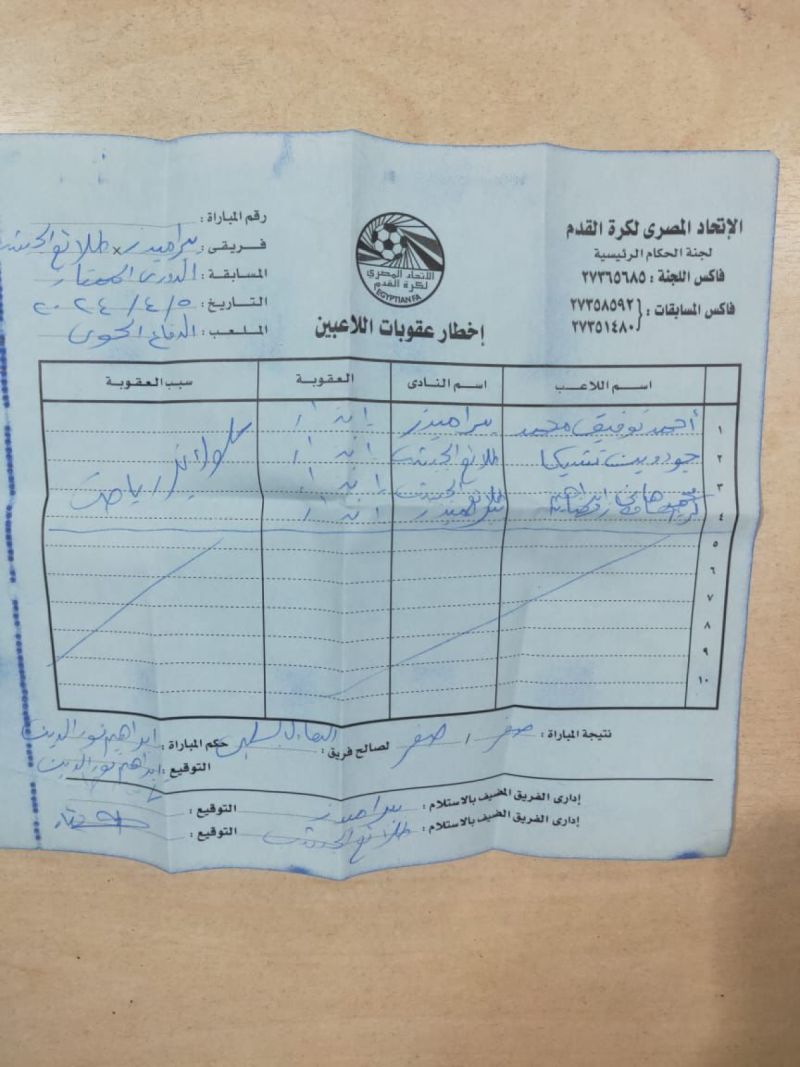 الإتحاد المصرى لكرة القدم
لجنة الحكام الرئيسية
فاكس اللجنة : ٢٧٣٦٥٦٨٥
فاكس المسابقات : ٢٧٣٥٨٥٩٢
٢٧٣٥١٤٨٠
الاتحاد المصري
لكرة القدم
EGYPTIAN FA
إخطار عقوبات اللاعبين
رقم المباراة :
فريقى : بيراميدز × طلائع الجيش
المسابقة : الدورى الممتاز
التاريخ : ٢٠٢٤/٤/٥
الملعب : الدفاع الجوى
اسم اللاعب اسم النادى العقوبة سبب العقوبة
١ أحمد توفيق محمد بيراميدز إنذار سلوك غير رياضى
٢ جودوين تشيكا طلائع الجيش إنذار
٣ طلائع الجيش إنذار
٤ بيراميدز إنذار
٥
٦
٧
٨
٩
١٠
نتيجة المباراة : صفر / صفر لصالح فريق : التعادل السلبى حكم المباراة : ابراهيم نور الدين
التوقيع : ابراهيم نور الدين
إدارى الفريق المضيف بالاستلام : بيراميدز التوقيع :
إدارى الفريق الضيف بالاستلام : طلائع الجيش التوقيع :